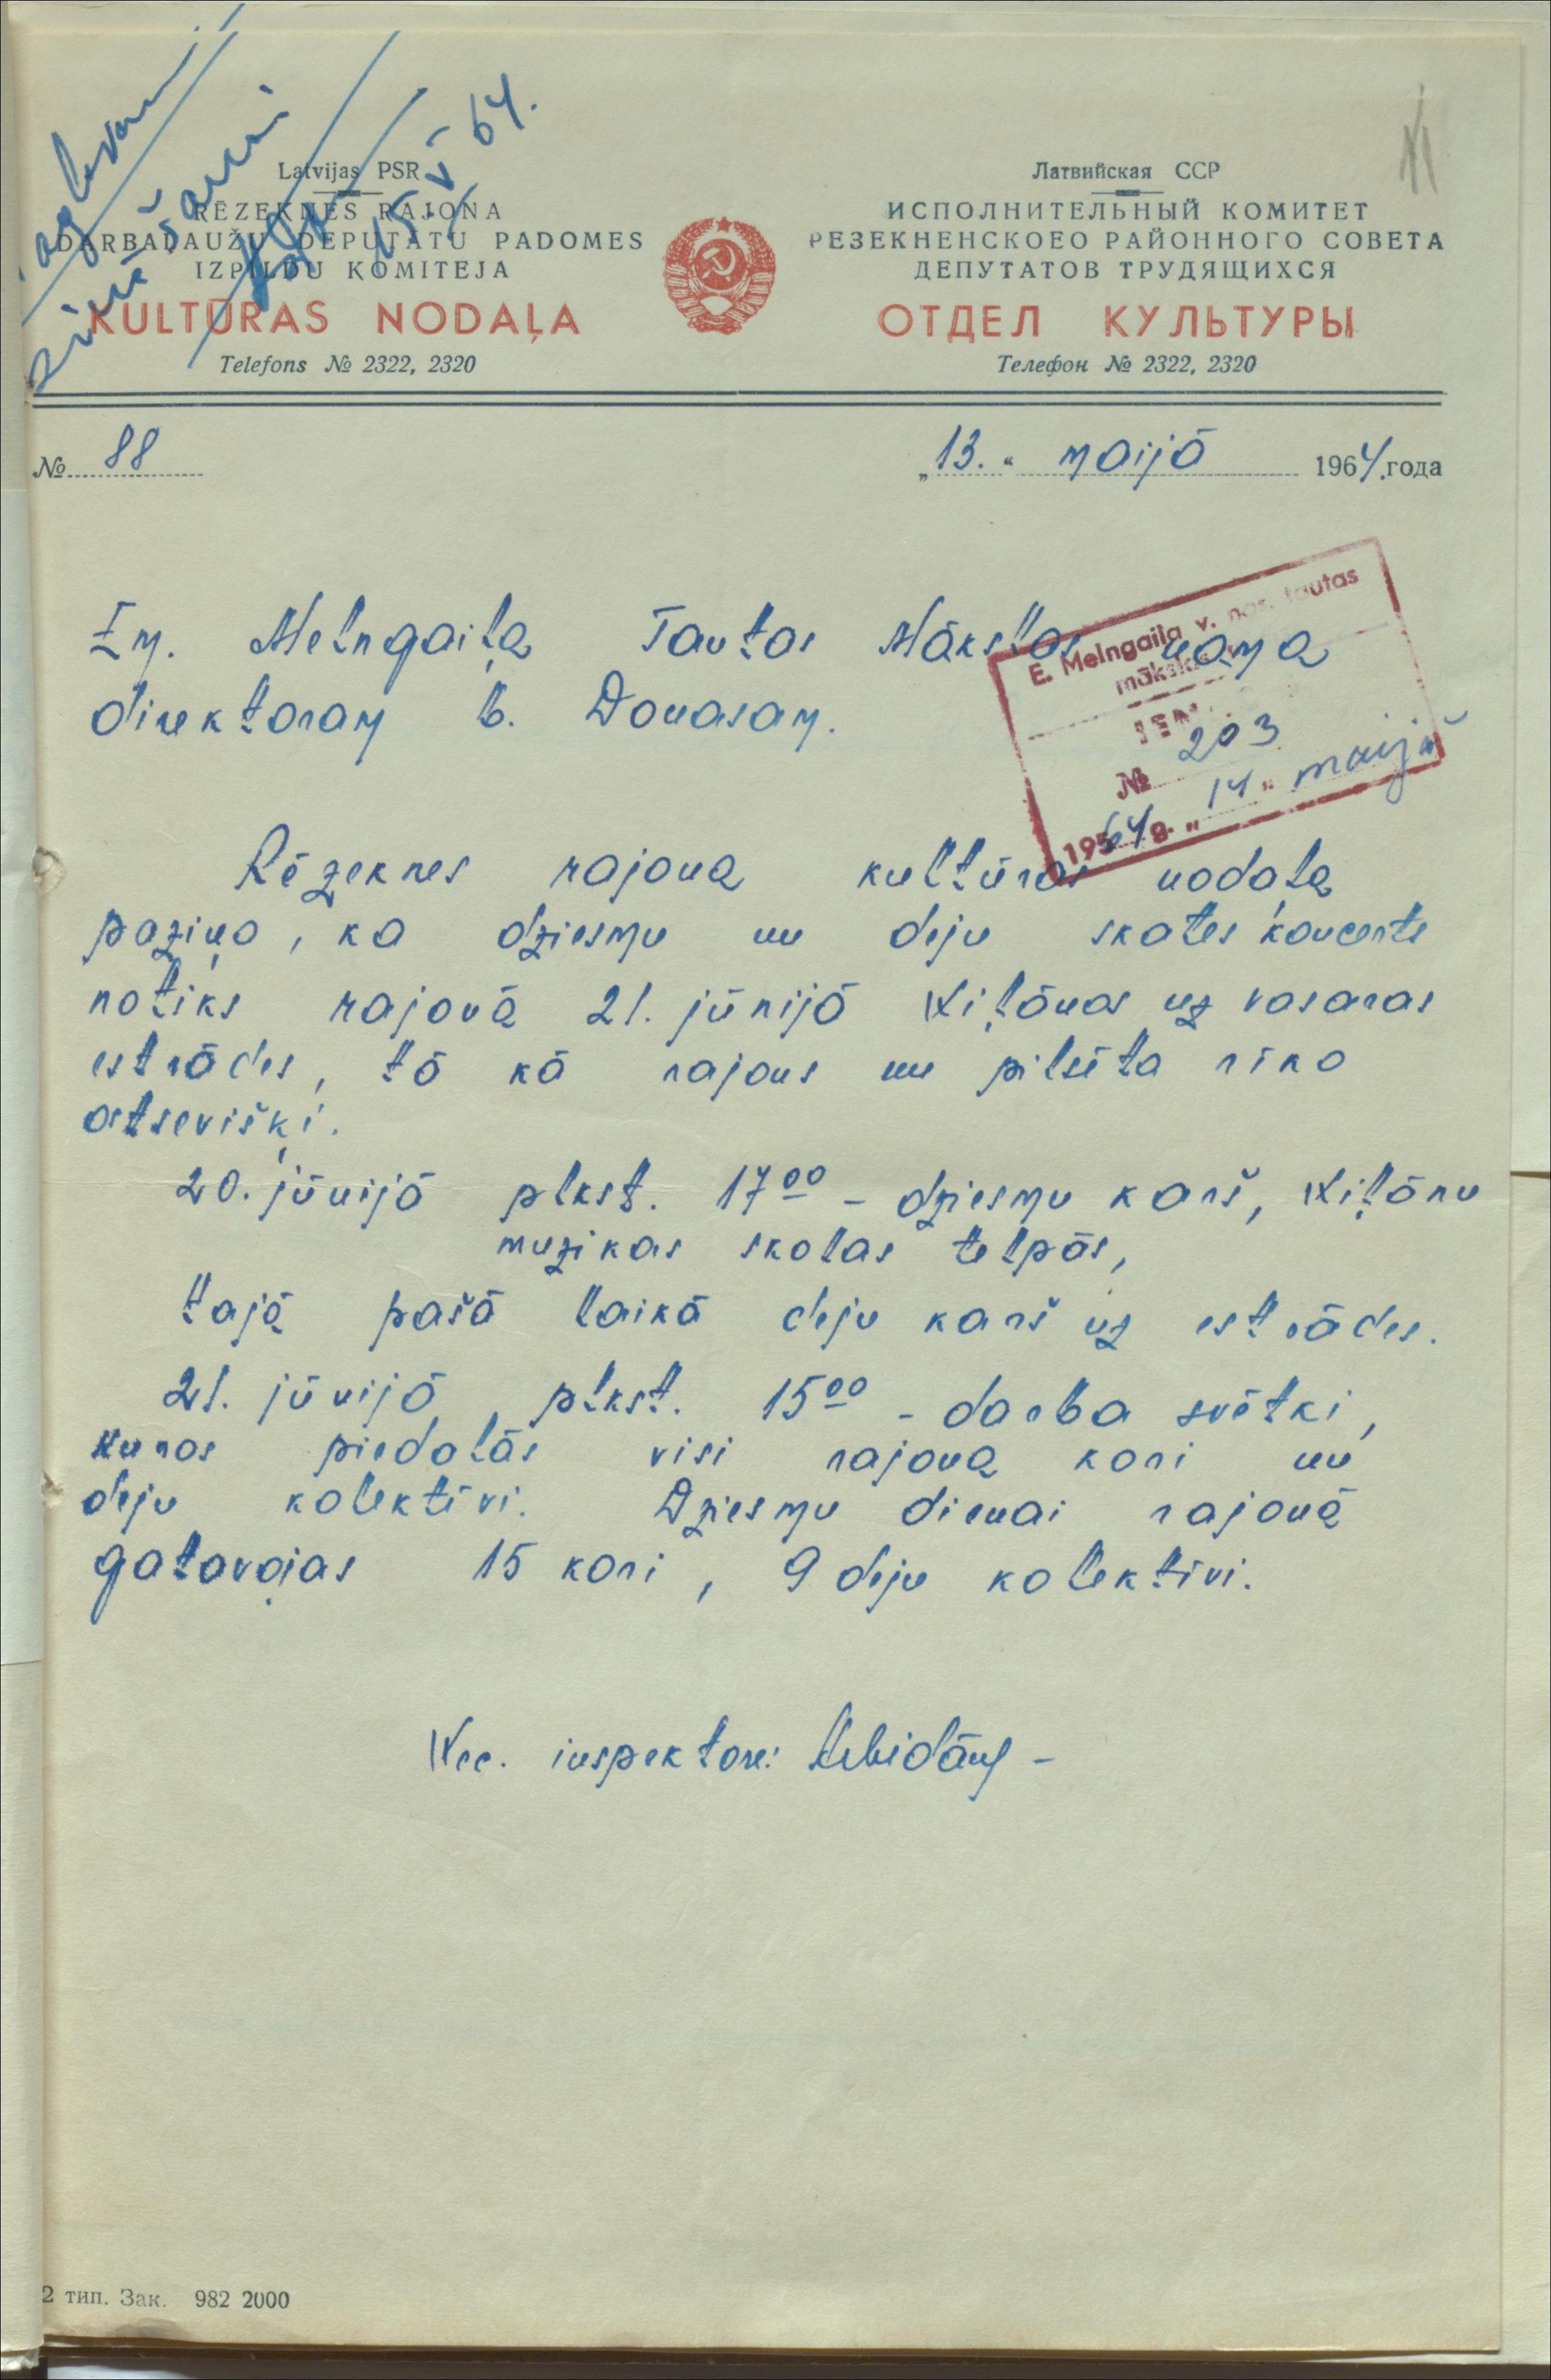 Latvijas PSR
RĒZEKNES RAJONA
DARBAĻAUŽU DEPUTĀTU PADOMES
IZPILDU KOMITEJA
KULTŪRAS NODAĻA
Telefons № 2322, 2320
Латвийская ССР
ИСПОЛНИТЕЛЬНЫЙ КОМИТЕТ
РЕЗЕКНЕНСКОЕО РАЙОННОГО СОВЕТА
ДЕПУТАТОВ ТРУДЯЩИХСЯ
ОТДЕЛ КУЛЬТУРЫ
Телефон № 2322, 2320
15. V 64.
№ 88
„13.“ maijā 1964. года
E. Melngaiļa v. nos. tautas
mākslas
№ 203
1964 g. „14“ maijā
Em. Melngaiļa Tautas Mākslas nama
direktoram b. Donasam.
Rēzeknes rajona kultūras nodaļa
paziņo, ka dziesmu un deju skates koncerts
notiks rajonā 21. jūnijā Viļānos uz vasaras
estrādes, tā kā rajons un pilsēta rīko
atsevišķi.
20. jūnijā plkst. 17⁰⁰ – dziesmu karš, Viļānu
muzikas skolas telpās,
tajā pašā laikā deju karš uz estrādes.
21. jūnijā plkst. 15⁰⁰ – darba svētki,
kuros piedalās visi rajona kori un
deju kolektīvi. Dziesmu dienai rajonā
gatavojas 15 kori, 9 deju kolektīvi.
Vec. inspektore:
2 тип. Зак. 982 2000